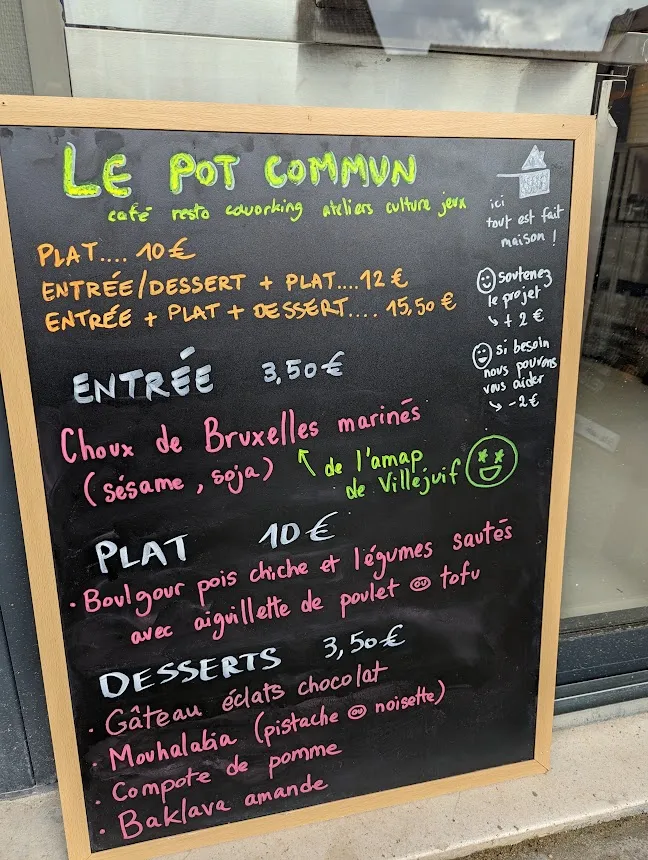 LE POT COMMUN
café resto coworking ateliers culture jeux
ici
tout est fait
maison !
PLAT.... 10 €
ENTRÉE/DESSERT + PLAT....12 €
ENTRÉE + PLAT + DESSERT.... 15,50 €
soutenez
le projet
↳ + 2 €
si besoin
nous pouvons
vous aider
↳ - 2 €
ENTRÉE 3,50 €
Choux de Bruxelles marinés
(sésame, soja)
de l'amap
de Villejuif
PLAT 10 €
• Boulgour pois chiche et légumes sautés
avec aiguillette de poulet ou tofu
DESSERTS 3,50 €
• Gâteau éclats chocolat
• Mouhalabia (pistache ou noisette)
• Compote de pomme
• Baklava amande